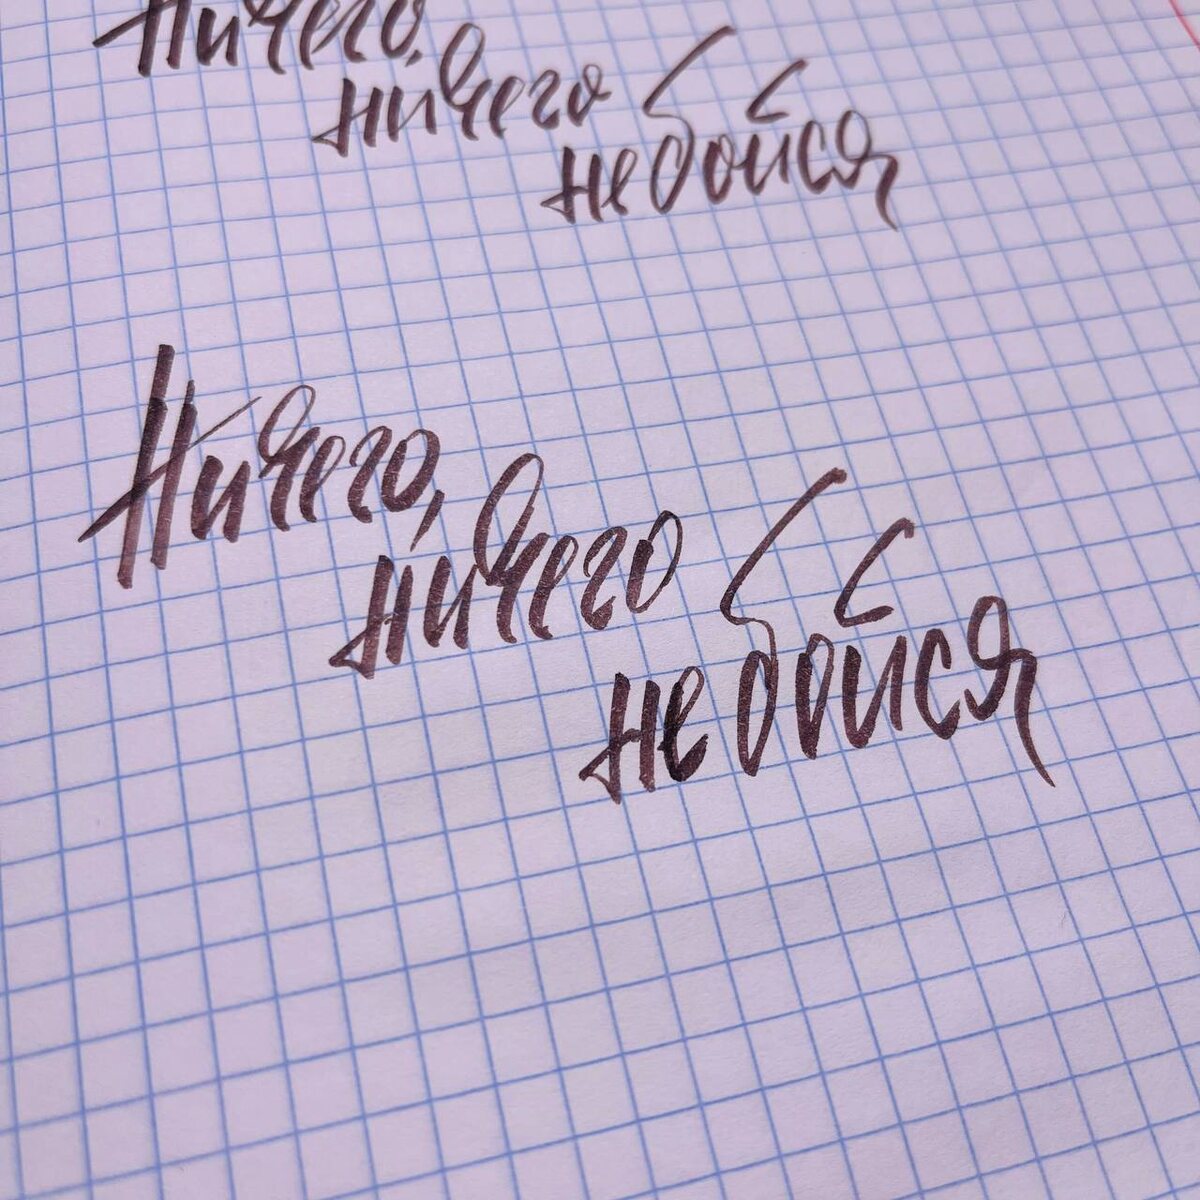 Ничего,
ничего
не бойся
Ничего,
ничего
не бойся